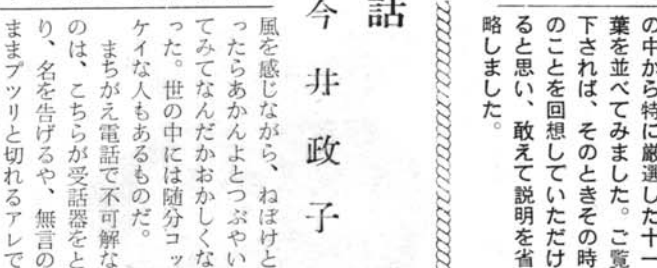 の中から特に厳選した十一
葉を並べてみました。ご覧
下されば、そのときその時
のことを回想していただけ
ると思い、敢えて説明を省
略しました。
話
今井政子
風を感じながら、ねぼけと
ったらあかんよとつぶやい
てみてなんだかおかしくな
った。世の中には随分コッ
ケイな人もあるものだ。
まちがえ電話で不可解な
のは、こちらが受話器をと
り、名を告げるや、無言の
ままプツリと切れるアレで